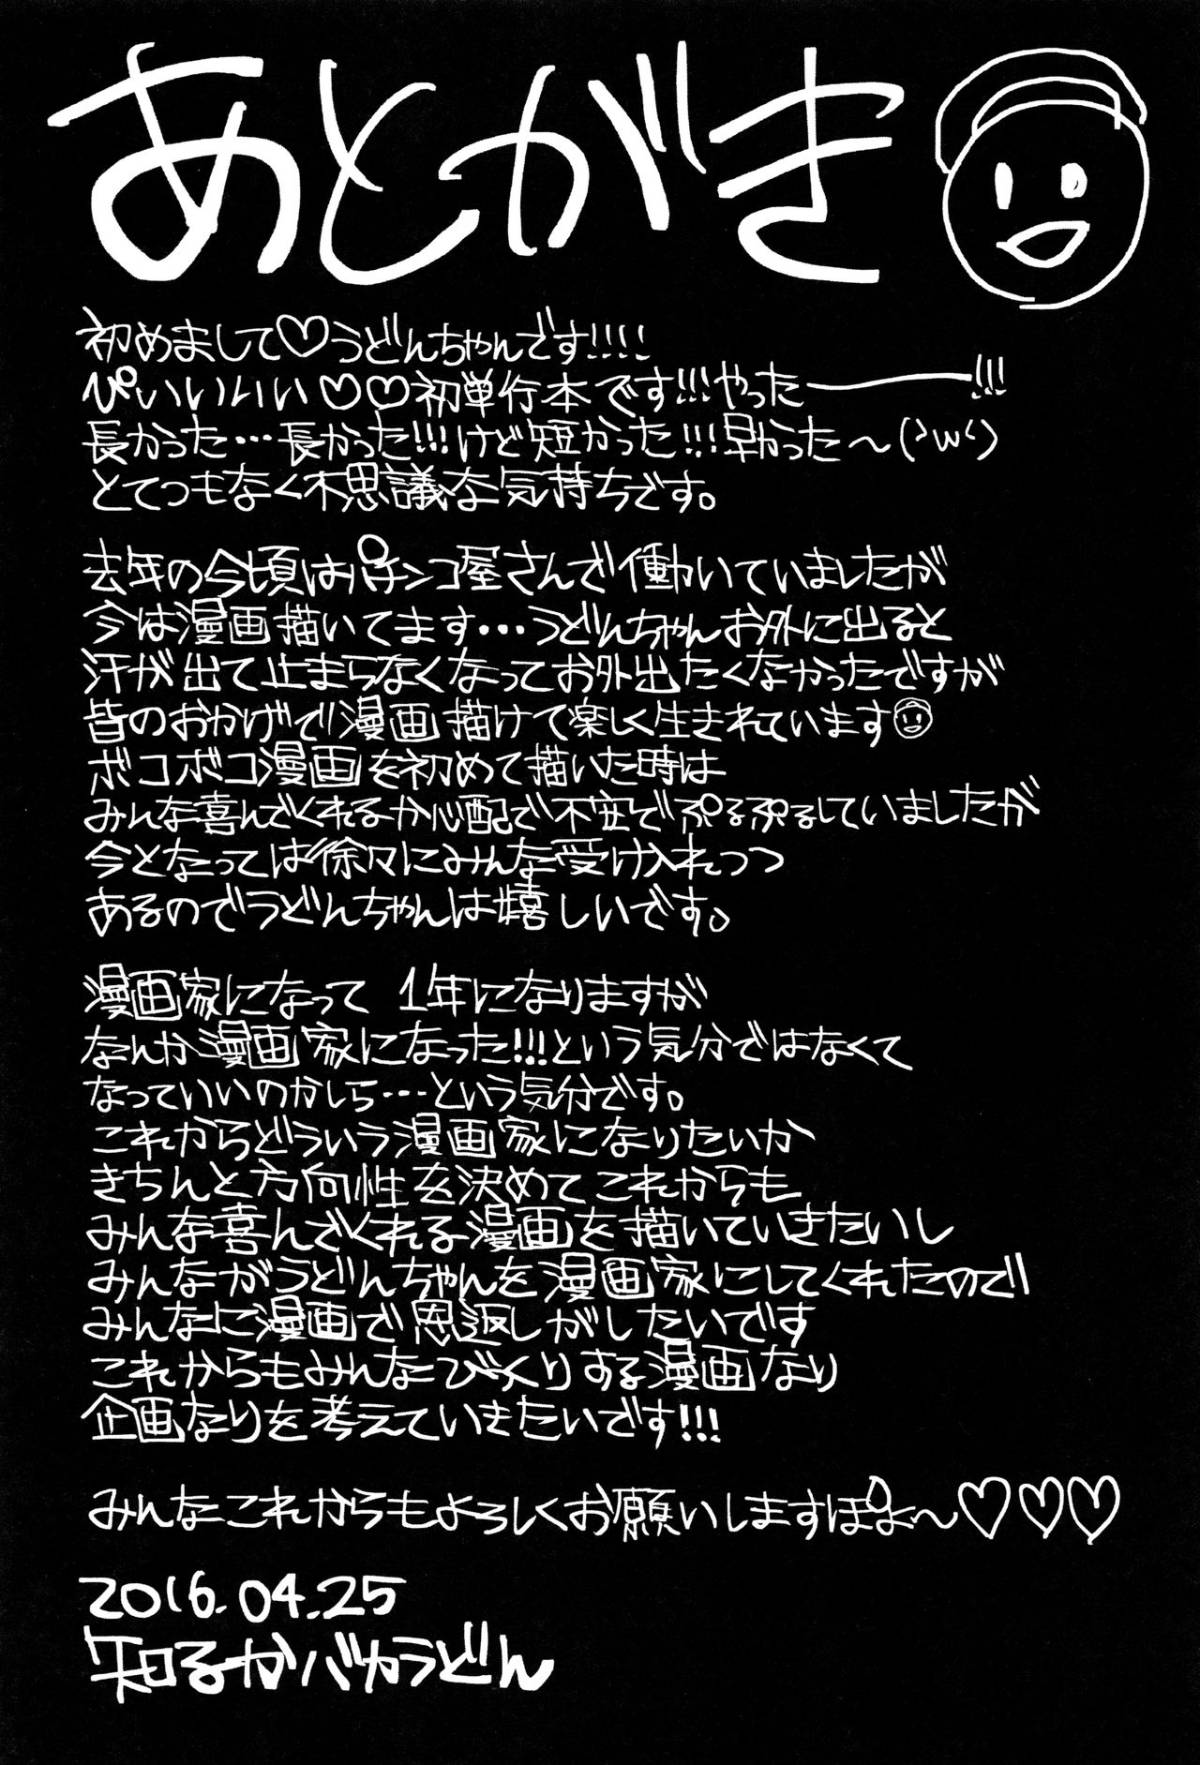 あとがき
初めまして♡うどんちゃんです!!!!
ぴぃいいいい♡♡初単行本です!!!やったーーー!!!
長かった…長かった!!!けど短かった!!!早かった～(>w<)
とてつもなく不思議な気持ちです。
去年の今頃はパチンコ屋さんで働いていましたが
今は漫画描いてます…うどんちゃんお外に出ると
汗が出て止まらなくなってお外出たくなかったですが
皆のおかげで漫画描けて楽しく生きれています
ボコボコ漫画を初めて描いた時は
みんな喜んでくれるか心配で不安でぷるぷるしていましたが
今となっては徐々にみんな受け入れつつ
あるのでうどんちゃんは嬉しいです。
漫画家になって 1年になりますが
なんか漫画家になった!!!という気分ではなくて
なっていいのかしら…という気分です。
これからどういう漫画家になりたいか
きちんと方向性を決めてこれからも
みんな喜んでくれる漫画を描いていきたいし
みんながうどんちゃんを漫画家にしてくれたので
みんなに漫画で恩返しがしたいです
これからもみんなびっくりする漫画なり
企画なりを考えていきたいです!!!
みんなこれからもよろしくお願いしますぽよ～♡♡♡
2016.04.25
知るかバカうどん